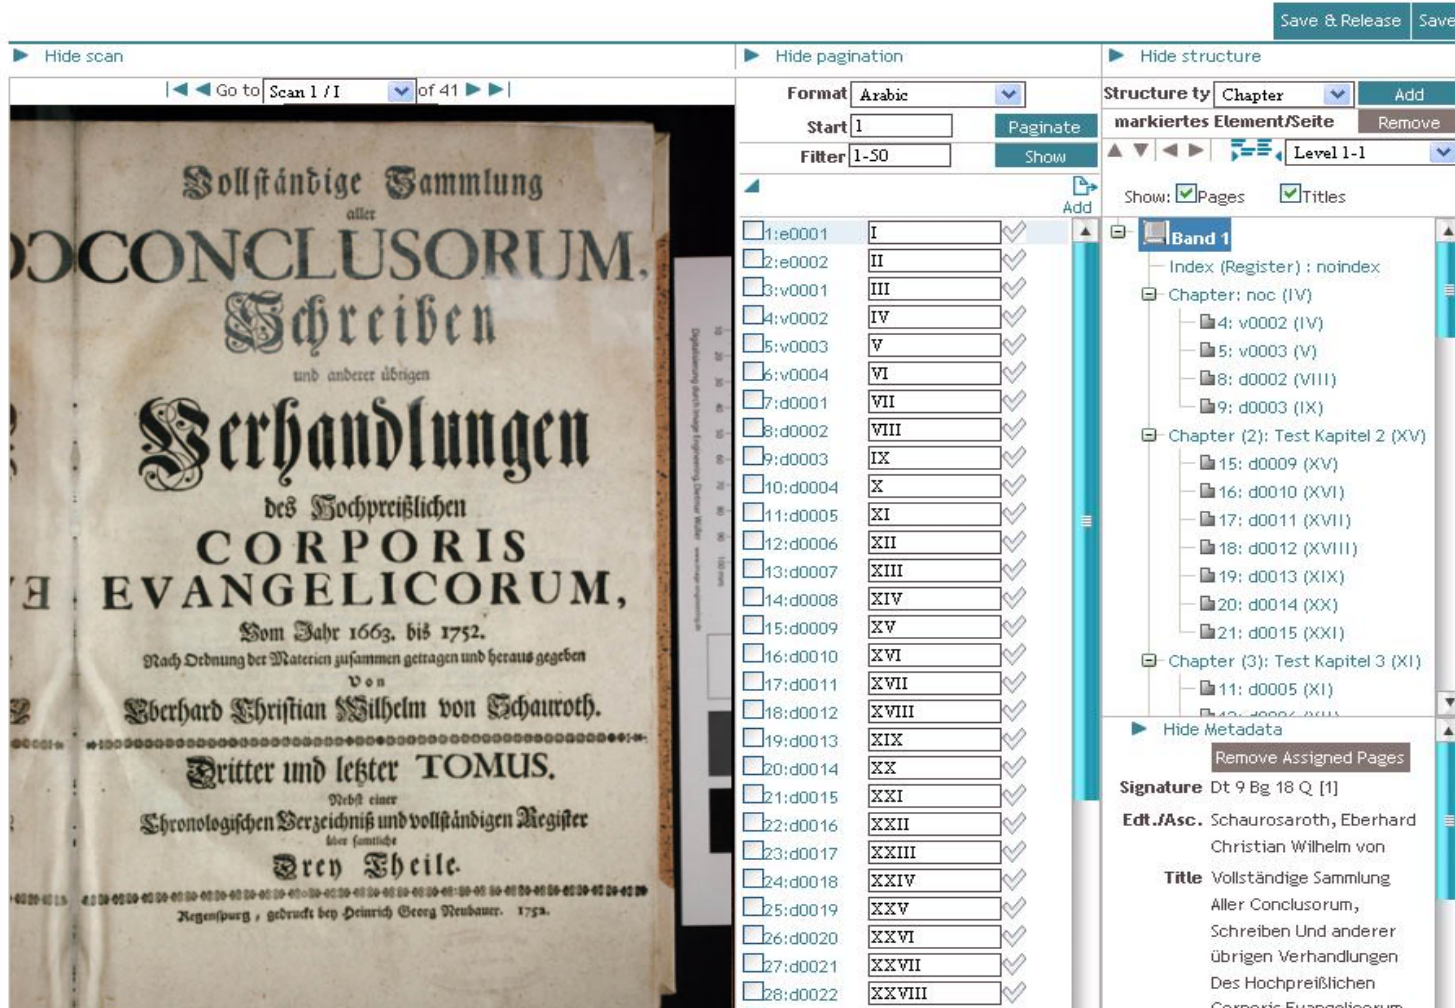 Save & Release
Save
Hide scan
Go to Scan 1 / I of 41
Vollständige Sammlung
aller
CONCLUSORUM,
Schreiben
und anderer übrigen
Verhandlungen
des Hochpreißlichen
CORPORIS
EVANGELICORUM,
Vom Jahr 1663. bis 1752.
Nach Ordnung der Materien zusammen getragen und heraus gegeben
Von
Eberhard Christian Wilhelm von Schauroth.
Dritter und letzter TOMUS.
Nebst einer
Chronologischen Verzeichniß und vollständigen Register
über samtliche
Drey Theile.
Regenspurg, gedruckt bey Heinrich Georg Neubauer. 1752.
Digitalisierung durch Image Engineering, Dietmar Wüller
Hide pagination
Format Arabic
Start 1 Paginate
Fitter 1-50 Show
Add
1:e0001 I
2:e0002 II
3:v0001 III
4:v0002 IV
5:v0003 V
6:v0004 VI
7:d0001 VII
8:d0002 VIII
9:d0003 IX
10:d0004 X
11:d0005 XI
12:d0006 XII
13:d0007 XIII
14:d0008 XIV
15:d0009 XV
16:d0010 XVI
17:d0011 XVII
18:d0012 XVIII
19:d0013 XIX
20:d0014 XX
21:d0015 XXI
22:d0016 XXII
23:d0017 XXIII
24:d0018 XXIV
25:d0019 XXV
26:d0020 XXVI
27:d0021 XXVII
28:d0022 XXVIII
Hide structure
Structure ty Chapter Add
markiertes Element/Seite Remove
Level 1-1
Show: Pages Titles
Band 1
Index (Register) : noindex
Chapter: noc (IV)
4: v0002 (IV)
5: v0003 (V)
8: d0002 (VIII)
9: d0003 (IX)
Chapter (2): Test Kapitel 2 (XV)
15: d0009 (XV)
16: d0010 (XVI)
17: d0011 (XVII)
18: d0012 (XVIII)
19: d0013 (XIX)
20: d0014 (XX)
21: d0015 (XXI)
Chapter (3): Test Kapitel 3 (XI)
11: d0005 (XI)
Hide Metadata
Remove Assigned Pages
Signature Dt 9 Bg 18 Q [1]
Edt./Asc. Schaurosaroth, Eberhard
Christian Wilhelm von
Title Vollständige Sammlung
Aller Conclusorum,
Schreiben Und anderer
übrigen Verhandlungen
Des Hochpreißlichen
Corporis Evangelicorum